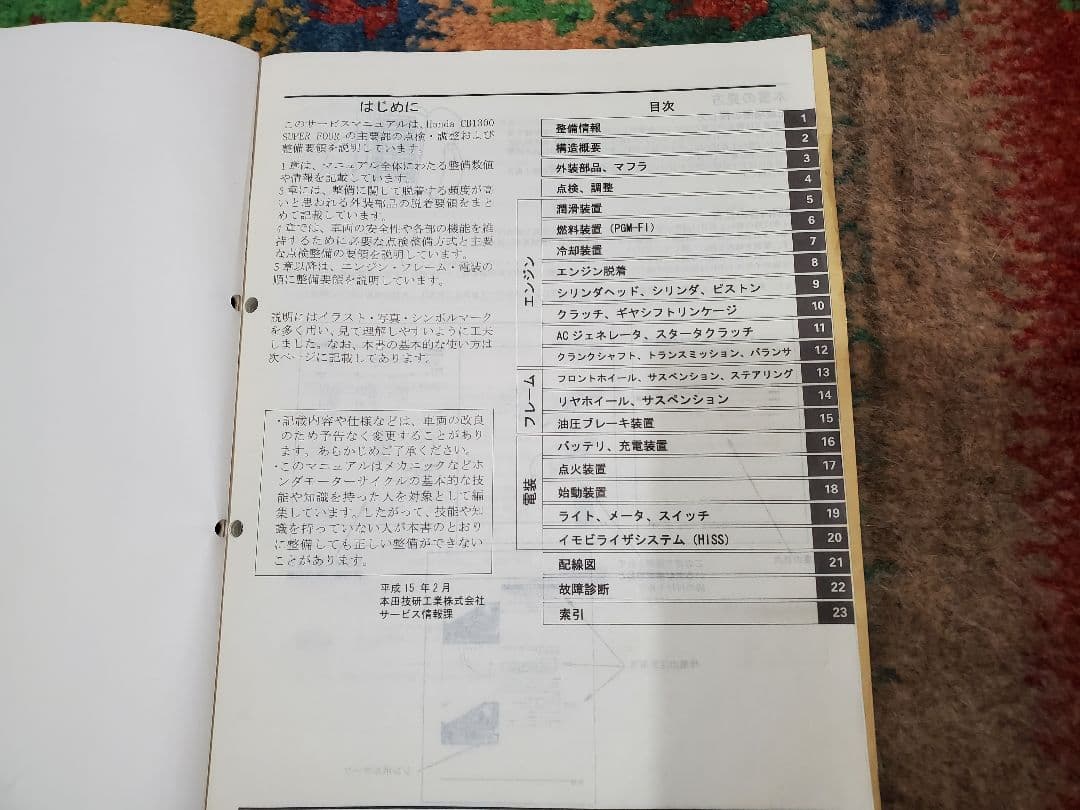 はじめに
このサービスマニュアルは、Honda CB1300
SUPER FOUR の主要部の点検・調整および
整備要領を説明しています。
1章は、マニュアル全体にわたる整備数値
や情報を記載しています。
3章には、整備に関して脱着する頻度が高
いと思われる外装部品の脱着要領をまと
めて記載しています。
4章では、車両の安全性や各部の機能を維
持するために必要な点検整備方式と主要
な点検整備の要領を説明しています。
5章以降は、エンジン・フレーム・電装の
順に整備要領を説明しています。
説明にはイラスト・写真・シンボルマーク
を多く用い、見て理解しやすいように工夫
しました。なお、本書の基本的な使い方は
次ページに記載してあります。
・記載内容や仕様などは、車両の改良
のため予告なく変更することがあり
ます。あらかじめご了承ください。
・このマニュアルはメカニックなどホ
ンダモーターサイクルの基本的な技
能や知識を持った人を対象として編
集しています。したがって、技能や知
識を持っていない人が本書のとおり
に整備しても正しい整備ができない
ことがあります。
平成15年2月
本田技研工業株式会社
サービス情報課
目次
整備情報 1
構造概要 2
外装部品、マフラ 3
点検、調整 4
エンジン
潤滑装置 5
燃料装置(PGM-FI) 6
冷却装置 7
エンジン脱着 8
シリンダヘッド、シリンダ、ピストン 9
クラッチ、ギヤシフトリンケージ 10
ACジェネレータ、スタータクラッチ 11
クランクシャフト、トランスミッション、バランサ 12
フレーム
フロントホイール、サスペンション、ステアリング 13
リヤホイール、サスペンション 14
油圧ブレーキ装置 15
電装
バッテリ、充電装置 16
点火装置 17
始動装置 18
ライト、メータ、スイッチ 19
イモビライザシステム(HISS) 20
配線図 21
故障診断 22
索引 23